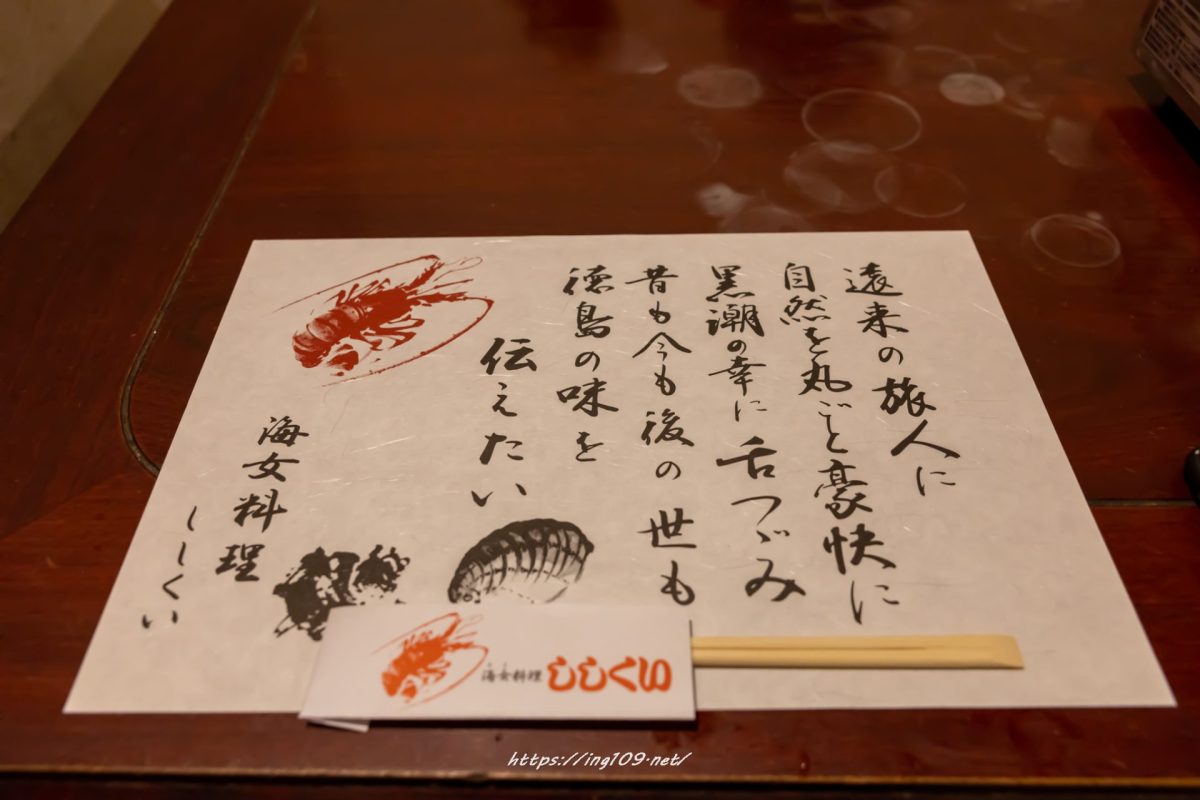 遠来の旅人に
自然を丸ごと豪快に
黒潮の幸に舌つゞみ
昔も今も後の世も
徳島の味を
伝えたい
海女料理
ししくい
海女料理 ししくい
https://ing109.net/